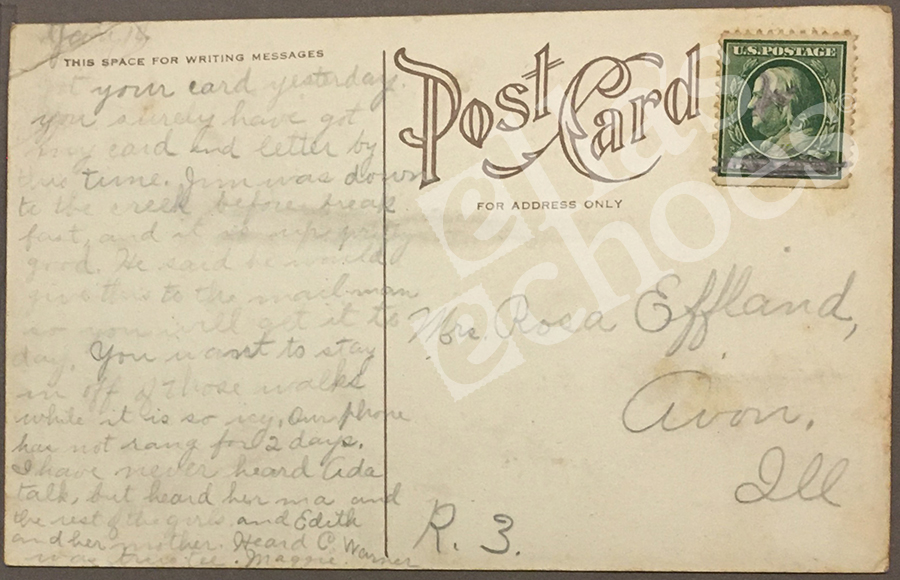 Jan. 18
THIS SPACE FOR WRITING MESSAGES
Got your card yesterday.
you surely have got
my card and letter by
this time. Jim was down
to the creek before break
fast, and it is up pretty
good. He said he would
give this to the mail man
so you will get it to
day. You want to stay
in off of those walks
while it is so icy. Our phone
has not rang for 2 days.
I have never heard Ada
talk, but heard her ma and
the rest of the girls and Edith
and her mother. Heard C. Warner
was Maggie Warner
Post Card
FOR ADDRESS ONLY
U.S. POSTAGE
Mrs. Rosa Effland,
Avon,
Ill
R. 3.